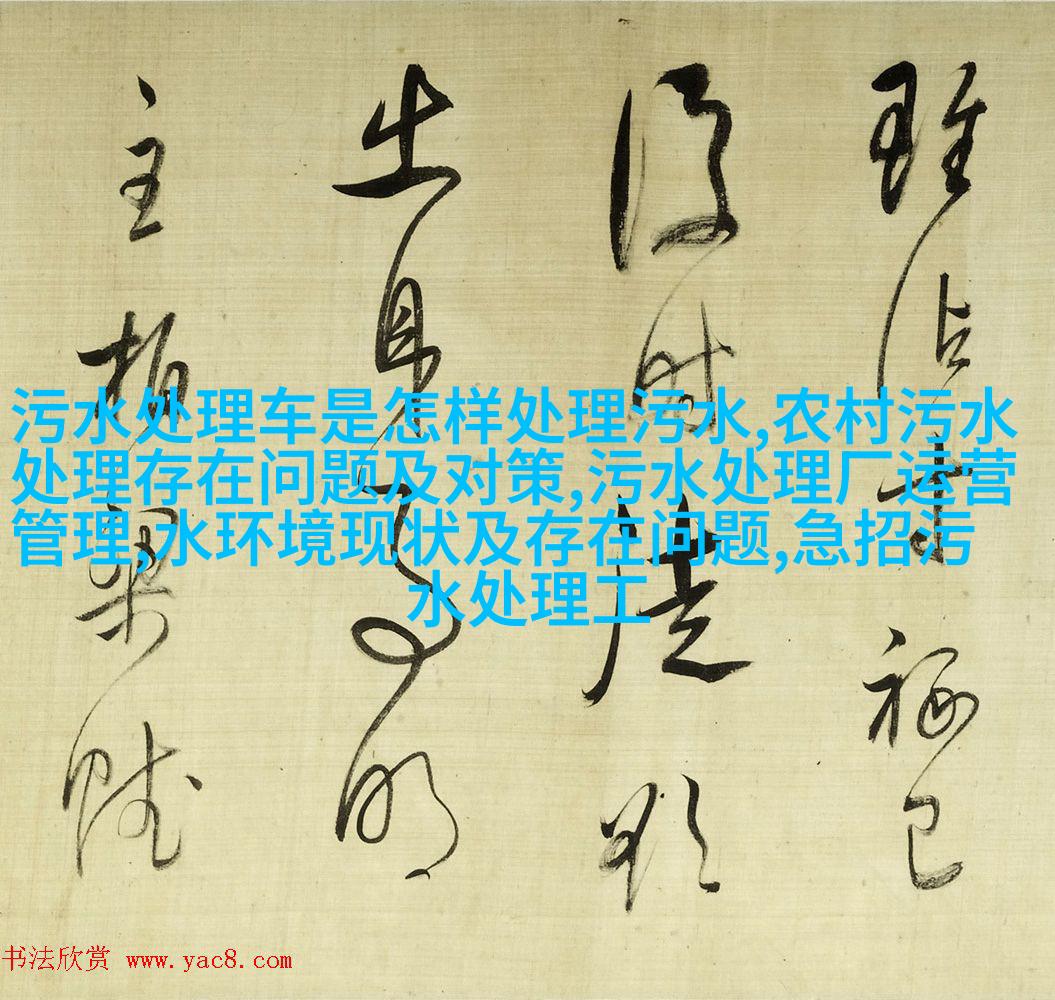 污水处理车是怎样处理污水,农村污水
处理存在问题及对策,污水处理厂运营
管理,水环境现状及存在问题,急招污
水处理工
雖沾
已
時
出見
明
主
梁賦
书法欣赏 www.yac8.com